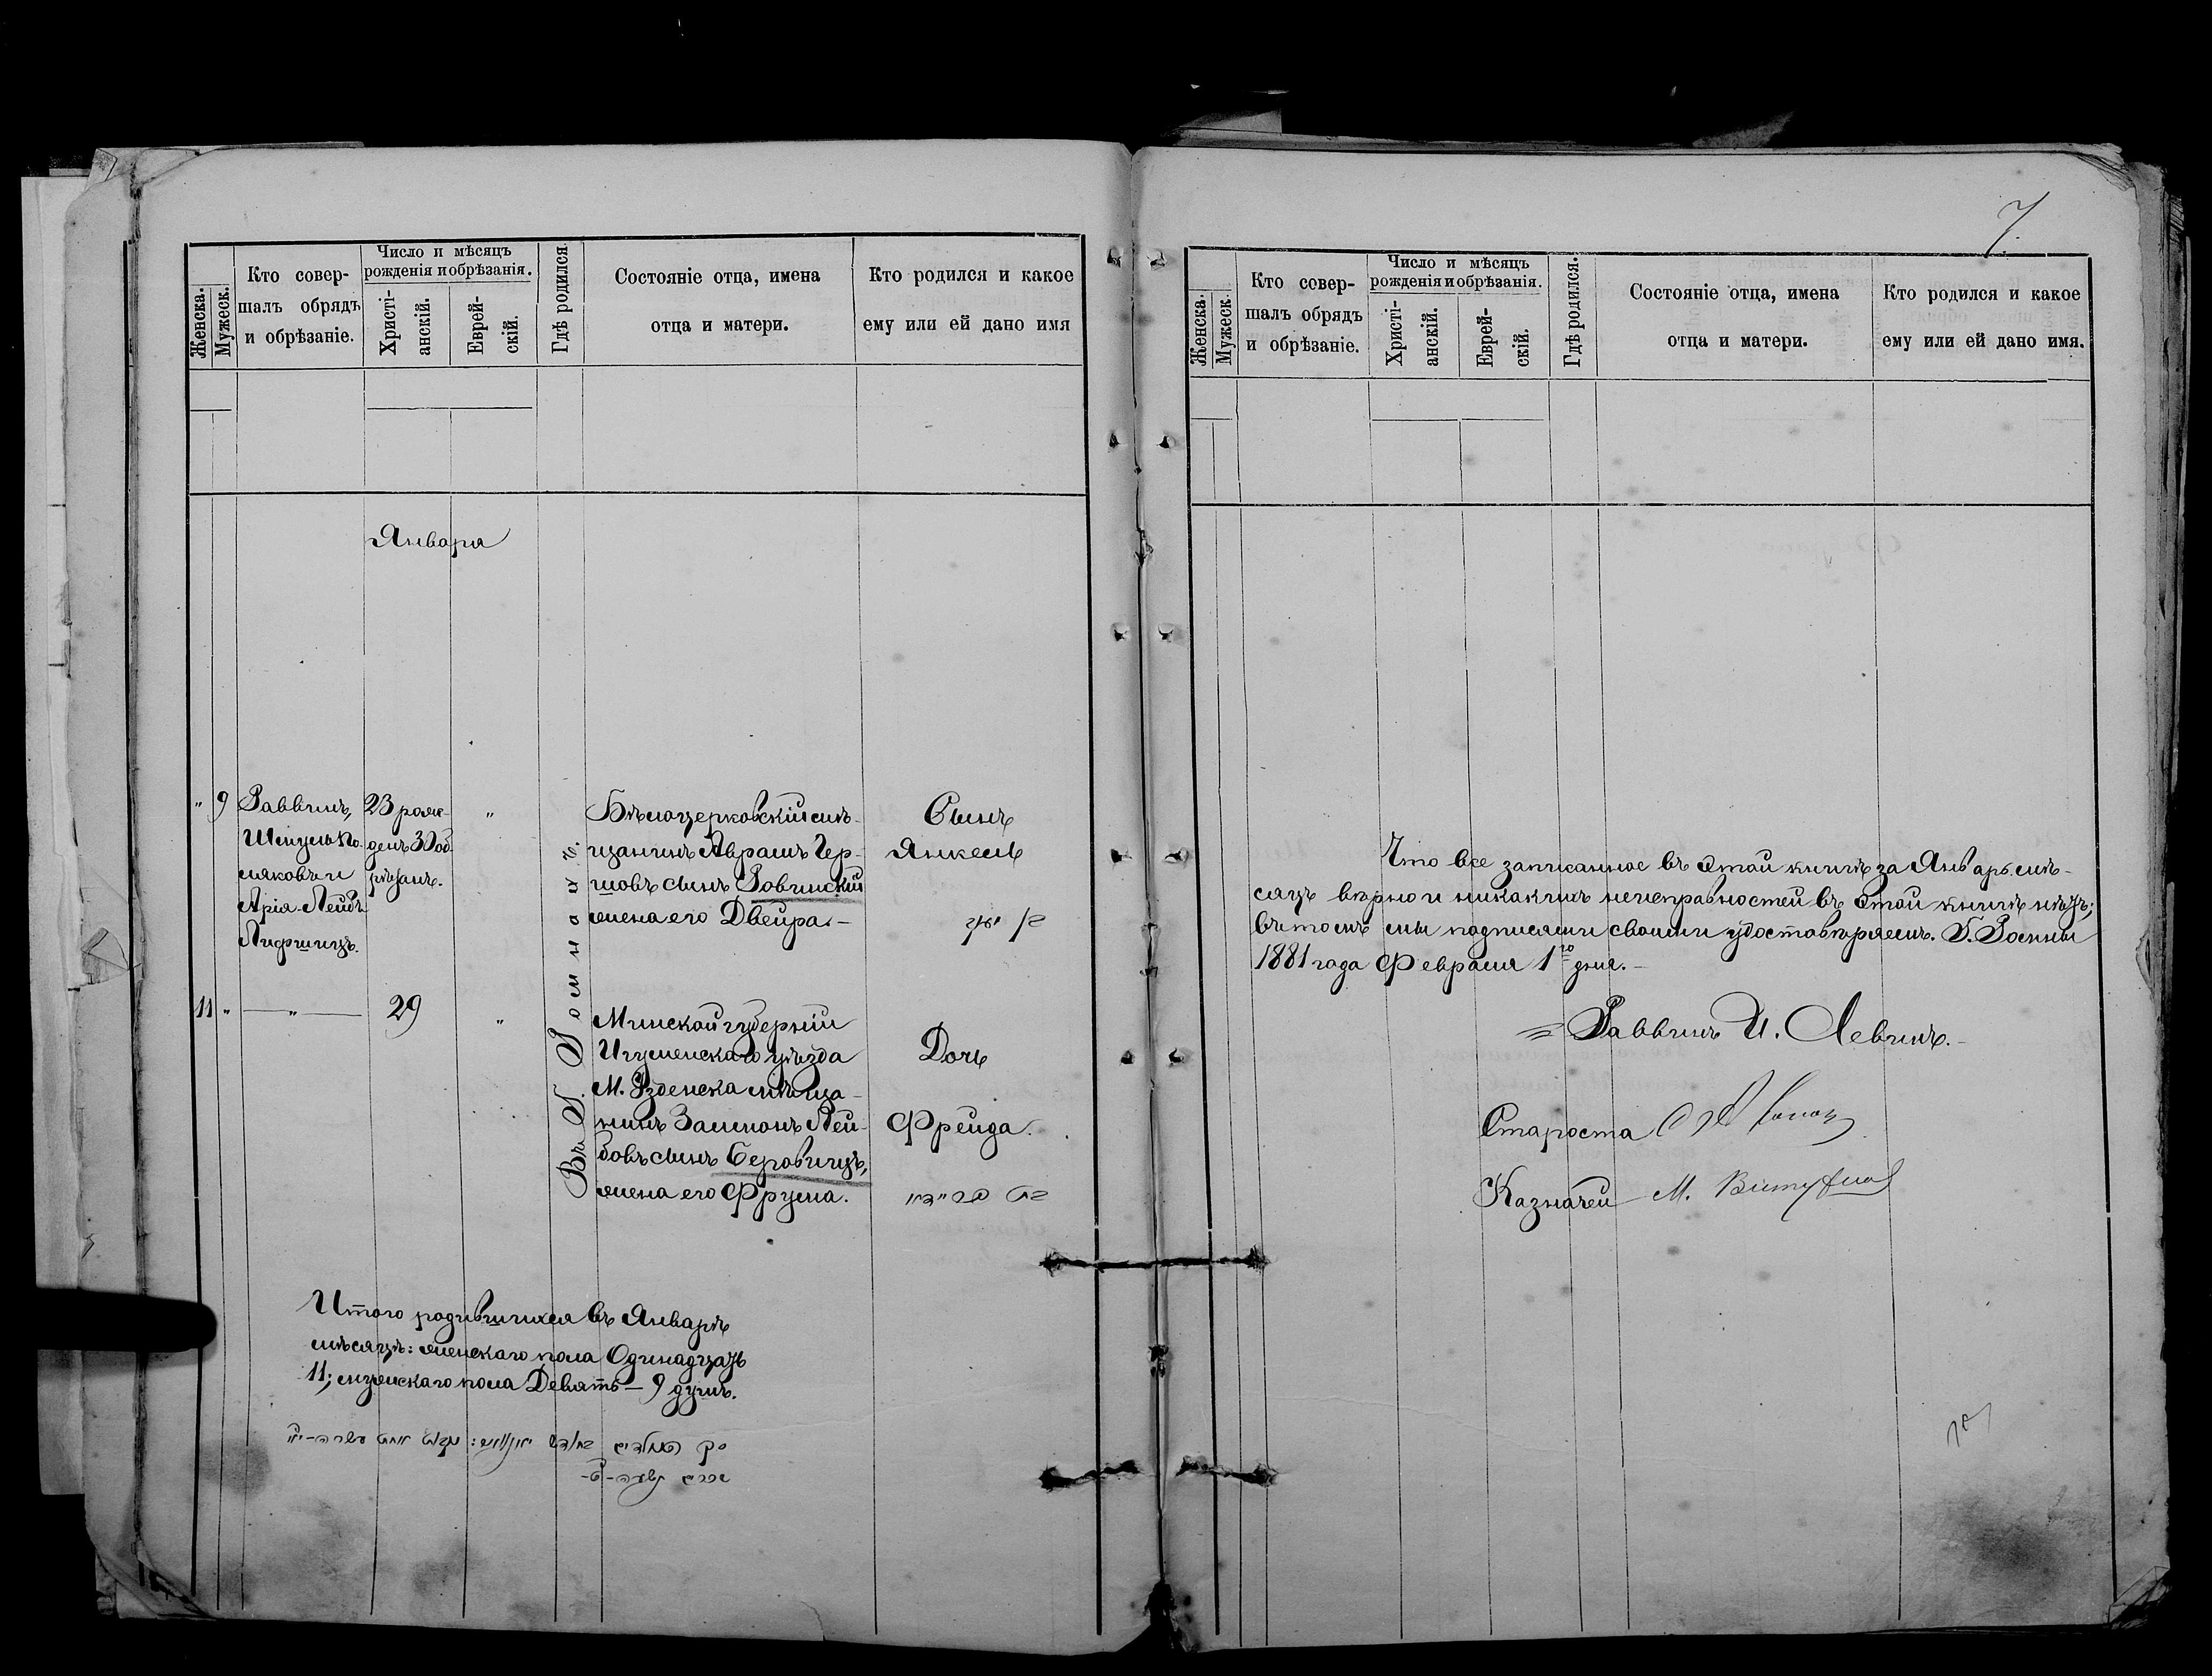 Женска.
Мужеск.
Кто совер-
шалъ обрядъ
и обрѣзаніе.
Число и мѣсяцъ
рожденія и обрѣзанія.
Христі-
анскій.
Еврей-
скій.
Гдѣ родился.
Состояніе отца, имена
отца и матери.
Кто родился и какое
ему или ей дано имя
Января
" 9
Раввинъ,
Шмуель По-
ляковъ и
Арія-Лейбъ
Лифшицъ.
23 рож-
денъ 30 об-
рѣзанъ.
"
Въ Г. Ромнахъ.
Бѣлоцерковскій мѣ-
щанинъ Аврамъ Гер-
шовъ сынъ Ровинскій
жена его Двейра.—
Сынъ
Янкель
בן יעקב
11 "
— " —
29
"
Минской губерніи
Игуменскаго уѣзда
М. Узденска мѣща-
нинъ Залмонъ Лей-
бовъ сынъ Беровичъ,
жена его Фрума.
Дочь
Фрейда.
בת פריידא
Итого родившихся въ Январѣ
мѣсяцѣ: женскаго пола Одинадцать
11; мужескаго пола Девять — 9 душъ.
סך הנולדים בחדש יאנואר: נקבות אחת עשרה-יא
זכרים תשעה-ט-
7.
Женска.
Мужеск.
Кто совер-
шалъ обрядъ
и обрѣзаніе.
Число и мѣсяцъ
рожденія и обрѣзанія.
Христі-
анскій.
Еврей-
скій.
Гдѣ родился.
Состояніе отца, имена
отца и матери.
Кто родился и какое
ему или ей дано имя.
Что все записанное въ этой книгѣ за Январь мѣ-
сяцъ вѣрно и никакихъ неисправностей въ этой книгѣ нѣтъ;
въ томъ мы подписями своими удостовѣряемъ. Г. Ромны
1881 года Февраля 1го дня.—
Раввинъ И. Левинъ.—
Староста
Казначей М.